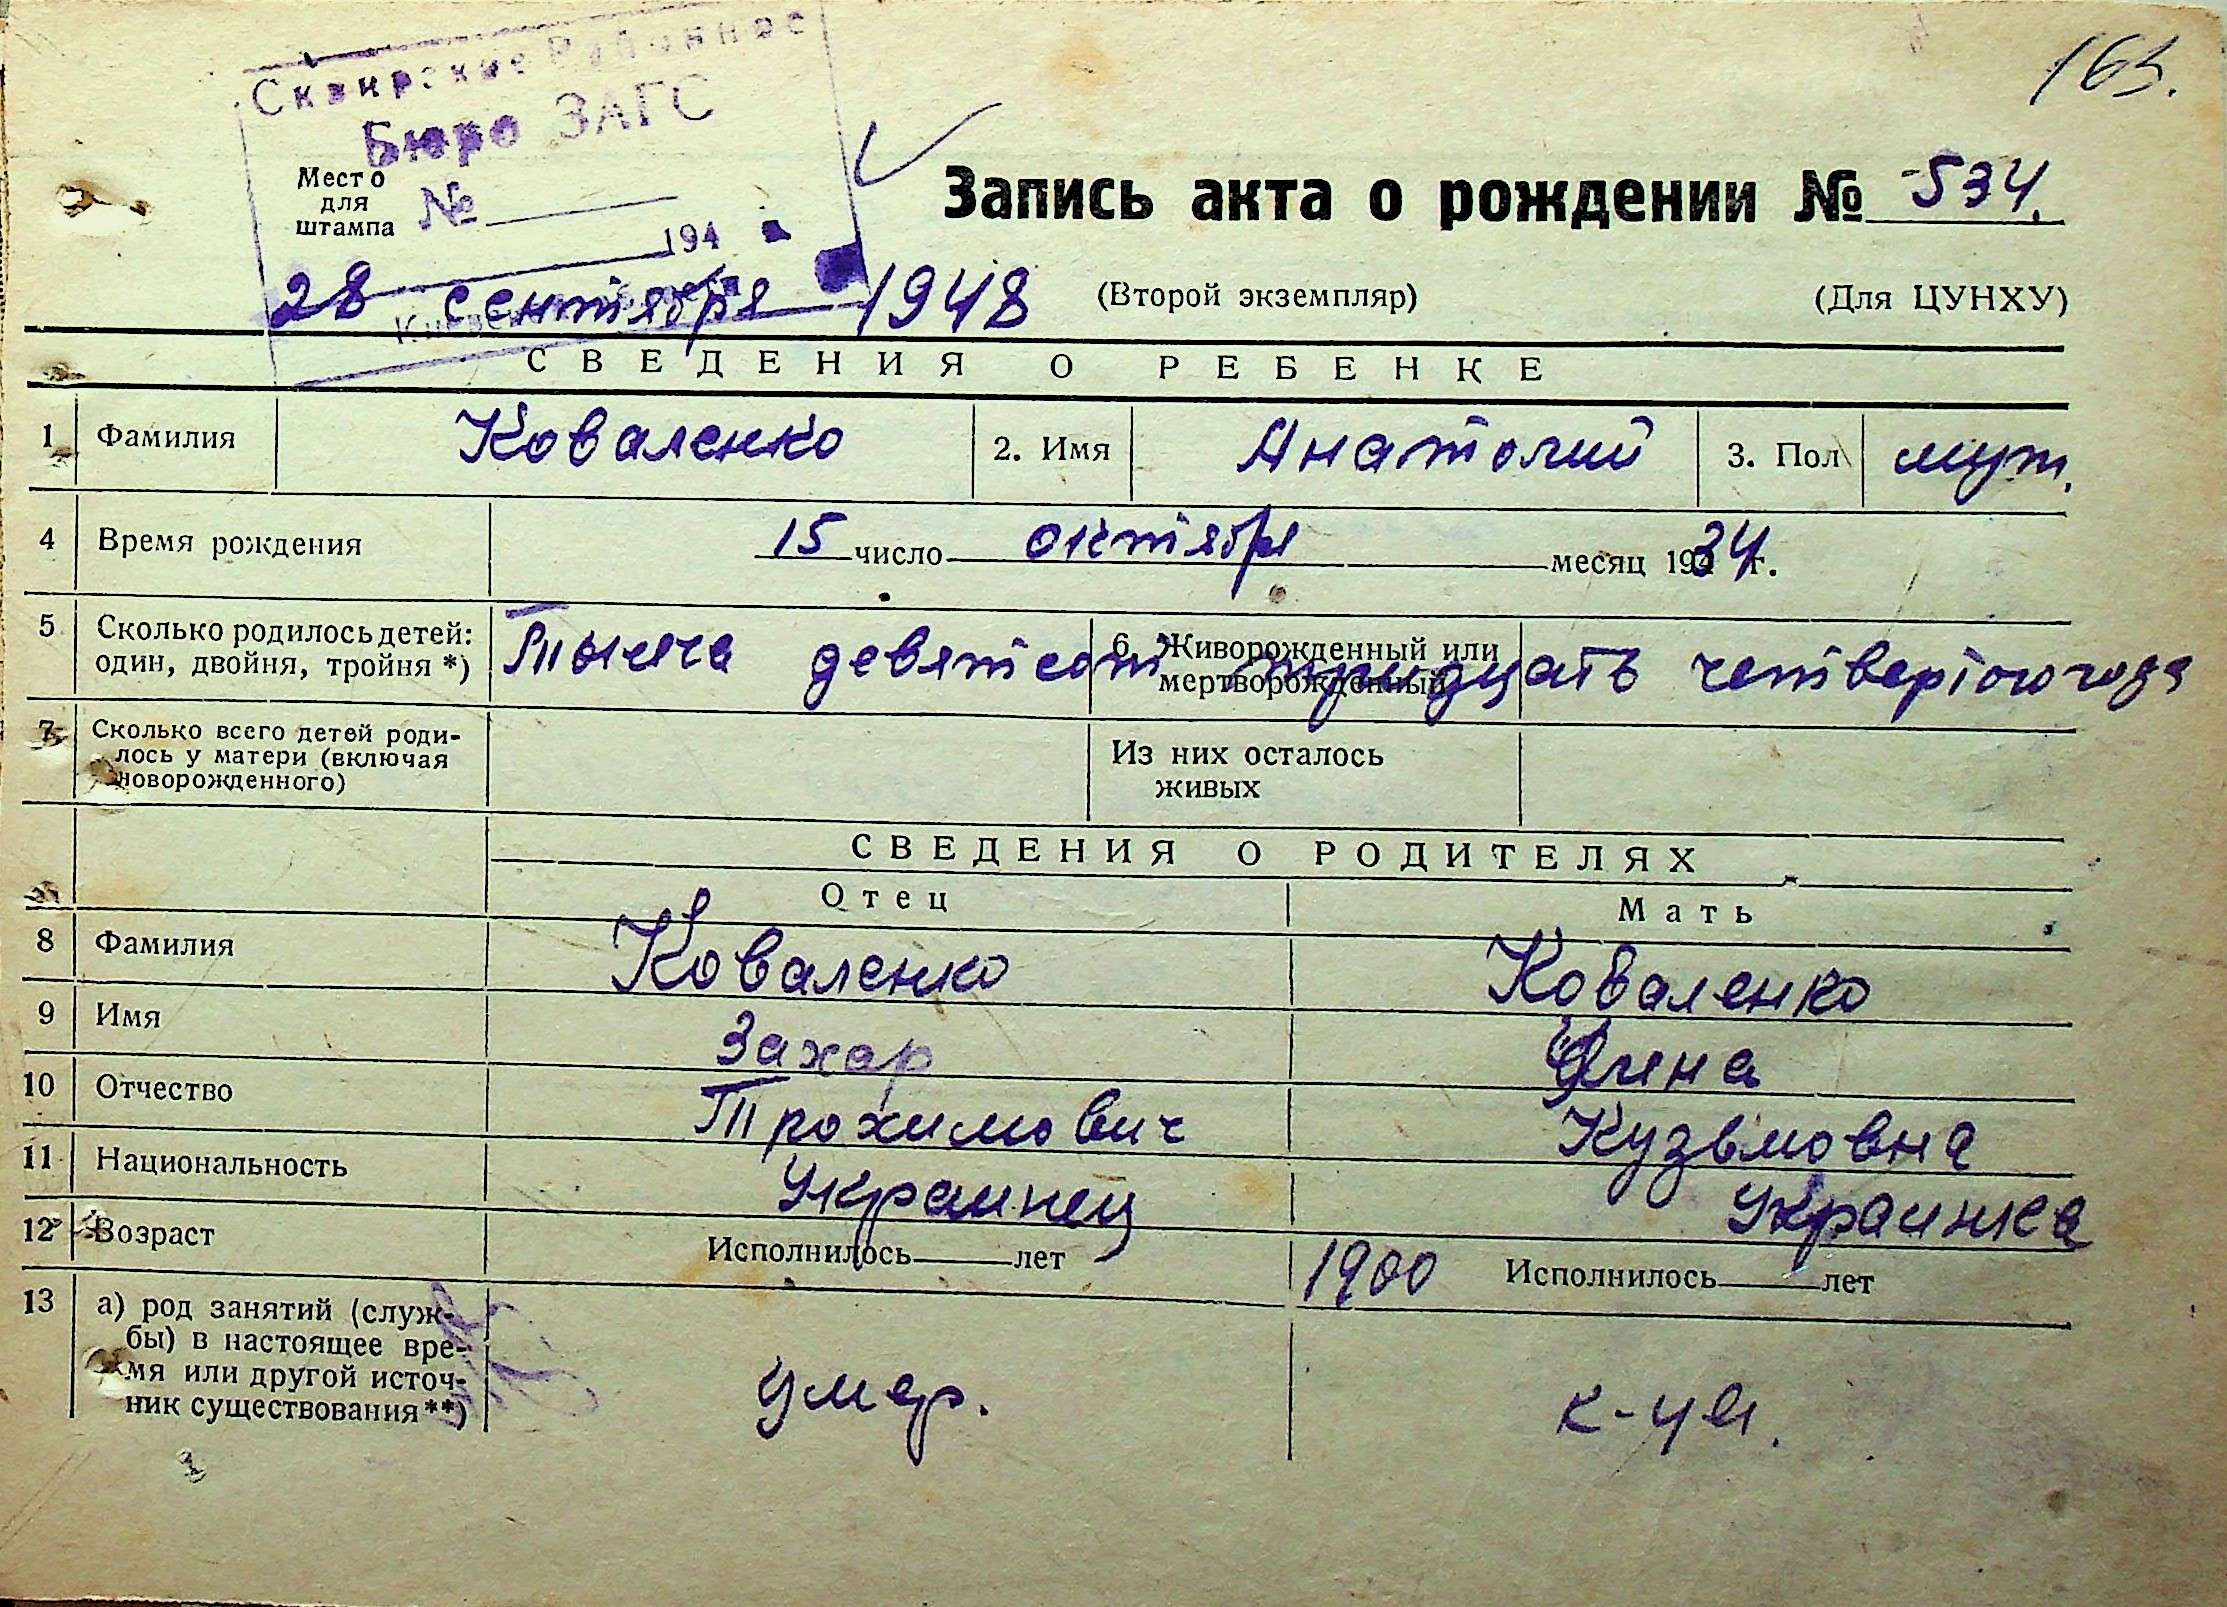 163.
Сквирское Районное
Бюро ЗАГС
Место
для
штампа
№
194
Запись акта о рождении № 534.
28 сентября 1948
(Второй экземпляр) (Для ЦУНХУ)
СВЕДЕНИЯ О РЕБЕНКЕ
1 Фамилия Коваленко 2. Имя Анатолий 3. Пол муж.
4 Время рождения 15 число октября месяц 1934 г.
5 Сколько родилось детей: 6. Живорожденный или
один, двойня, тройня *) мертворожденный
Тысяча девятсот тридцать четвертого года
7 Сколько всего детей роди-
лось у матери (включая
новорожденного)
Из них осталось
живых
СВЕДЕНИЯ О РОДИТЕЛЯХ
Отец Мать
8 Фамилия Коваленко Коваленко
9 Имя Захар
10 Отчество Трохимович Кузьмовна
11 Национальность Украинец Украинка
12 Возраст Исполнилось лет 1900 Исполнилось лет
13 а) род занятий (служ-
бы) в настоящее вре-
мя или другой источ-
ник существования **)
умер. к-ца.